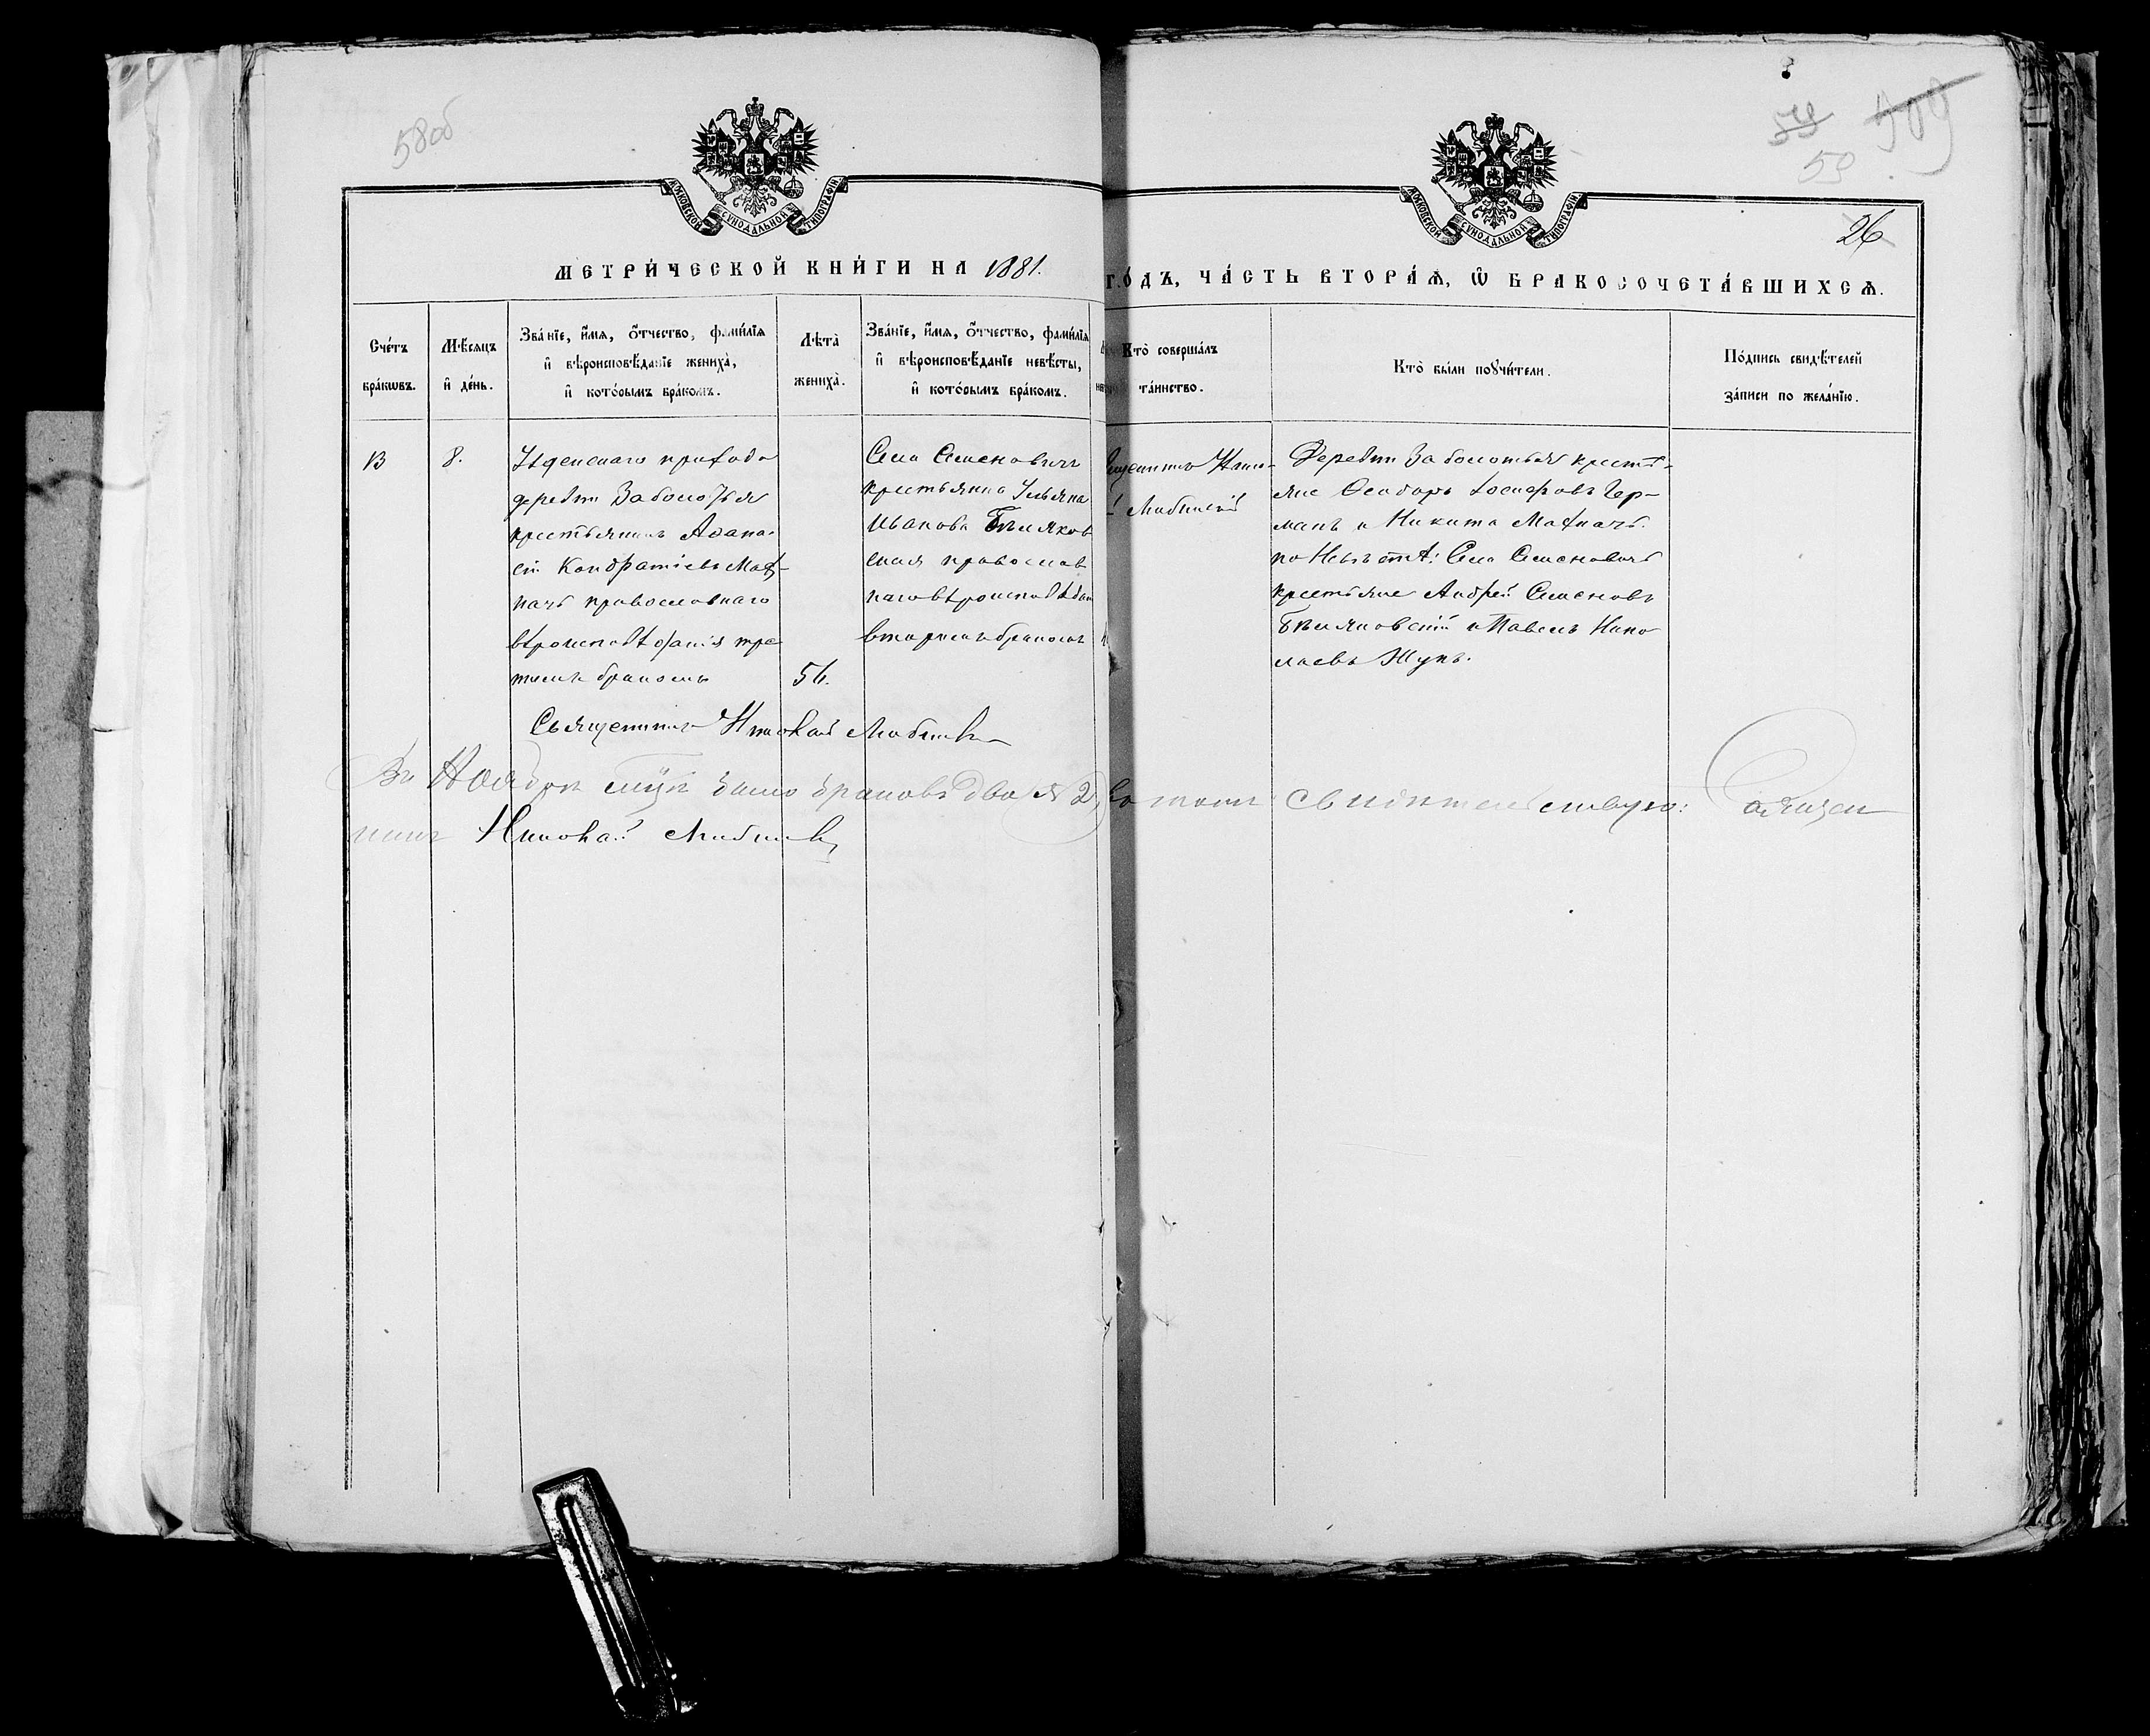 58об
59
509
59
26
МОСКОВСКОЙ СѴНОДАЛЬНОЙ ТИПОГРАФІИ
МОСКОВСКОЙ СѴНОДАЛЬНОЙ ТИПОГРАФІИ
МЕТРИ́ЧЕСКОЙ КНИ́ГИ НА 1881. ГО́ДЪ, ЧА́СТЬ ВТОРА́Ѧ, Ѽ БРАКОСОЧЕТА́ВШИХСѦ.
Сче́тъ
бра́кѡвъ.
Мѣ́сяцъ
и҆ де́нь.
Зва́нїе, и҆́мя, о҆́тчество, фами́лїя
и҆ вѣроисповѣ́данїе жениха̀,
и҆ кото́рымъ бра́комъ.
Лѣ́та̀
жениха̀.
Зва́нїе, и҆́мя, о҆́тчество, фами́лїя
и҆ вѣроисповѣ́данїе невѣ́сты,
и҆ кото́рымъ бра́комъ.
Кто̀ соверша́лъ
та́инство.
Кто̀ бы́ли поꙋчи́тели.
По́дпись свидѣ́телей
за́писи по жела́нїю.
13
8.
Узденскаго прихода
деревни Заболотья
крестьянинъ Аѳана-
сій Кондратіевъ Мах-
начъ православнаго
вѣроисповѣданія тре
тимъ бракомъ
56.
Села Семеновичъ
крестьянка Ульяна
Иванова Бѣляков
ская православ
наго вѣроисповѣдан
вторымъ бракомъ
Священникъ Нико-
Любинскій
Деревни Заболотья кресть-
яне Ѳеодоръ Іосифовъ Гер-
манъ и Никита Махначъ.
по Невѣстѣ: Села Семеновичъ
крестьяне Андрей Семеновъ
Бѣляковскій и Павелъ Нико
лаевъ Жукъ.
Священникъ Николай Любинск
Въ Ноябрѣ мцѣ было браковъ два № 2, въ томъ свидѣтельствую: Священ
никъ Николай Любинск